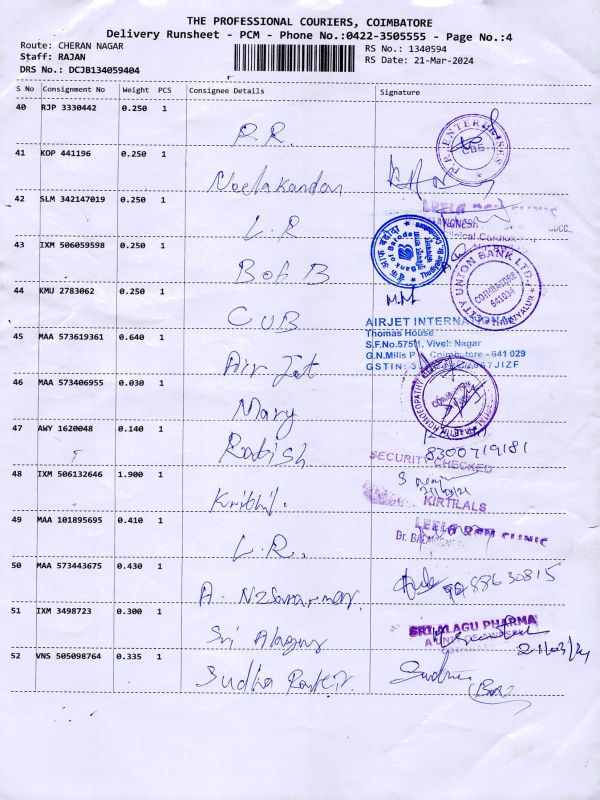 THE PROFESSIONAL COURIERS, COIMBATORE
Delivery Runsheet - PCM - Phone No.:0422-3505555 - Page No.:4
Route: CHERAN NAGAR
RS No.: 1340594
Staff: RAJAN
RS Date: 21-Mar-2024
DRS No.: DCJB134059404
S No Consignment No Weight PCS Consignee Details Signature
40 RJP 3330442 0.250 1
P.R.
P.R. ENTERPRISES
CBE
41 KOP 441196 0.250 1
Neelakandan
42 SLM 342147019 0.250 1
LEELA RAM CLINIC
L.R
43 IXM 506059598 0.250 1
Bank of Baroda
BobB
CITY UNION BANK LTD.
COIMBATORE
641034
44 KMU 2783062 0.250 1
M.M
CUB
AIRJET INTERNATIONAL
45 MAA 573619361 0.640 1
Thomas House
S.F.No.575/1, Vivek Nagar
G.N.Mills P Coimbatore - 641 029
Air Jet
46 MAA 573406955 0.030 1
HOMOEOPATHY
Mary
47 AWY 1620048 0.140 1
Rabish
8300719181
SECURITY CHECKED
48 IXM 506132646 1.900 1
KIRTILALS
Krithil.
49 MAA 101895695 0.410 1
LEELA RAM CLINIC
L.R.
50 MAA 573443675 0.430 1
A.
51 IXM 3498723 0.300 1
SRI ALAGU PHARMA
Sri Alagu
21/03/24
52 VNS 505098764 0.335 1
Sudha